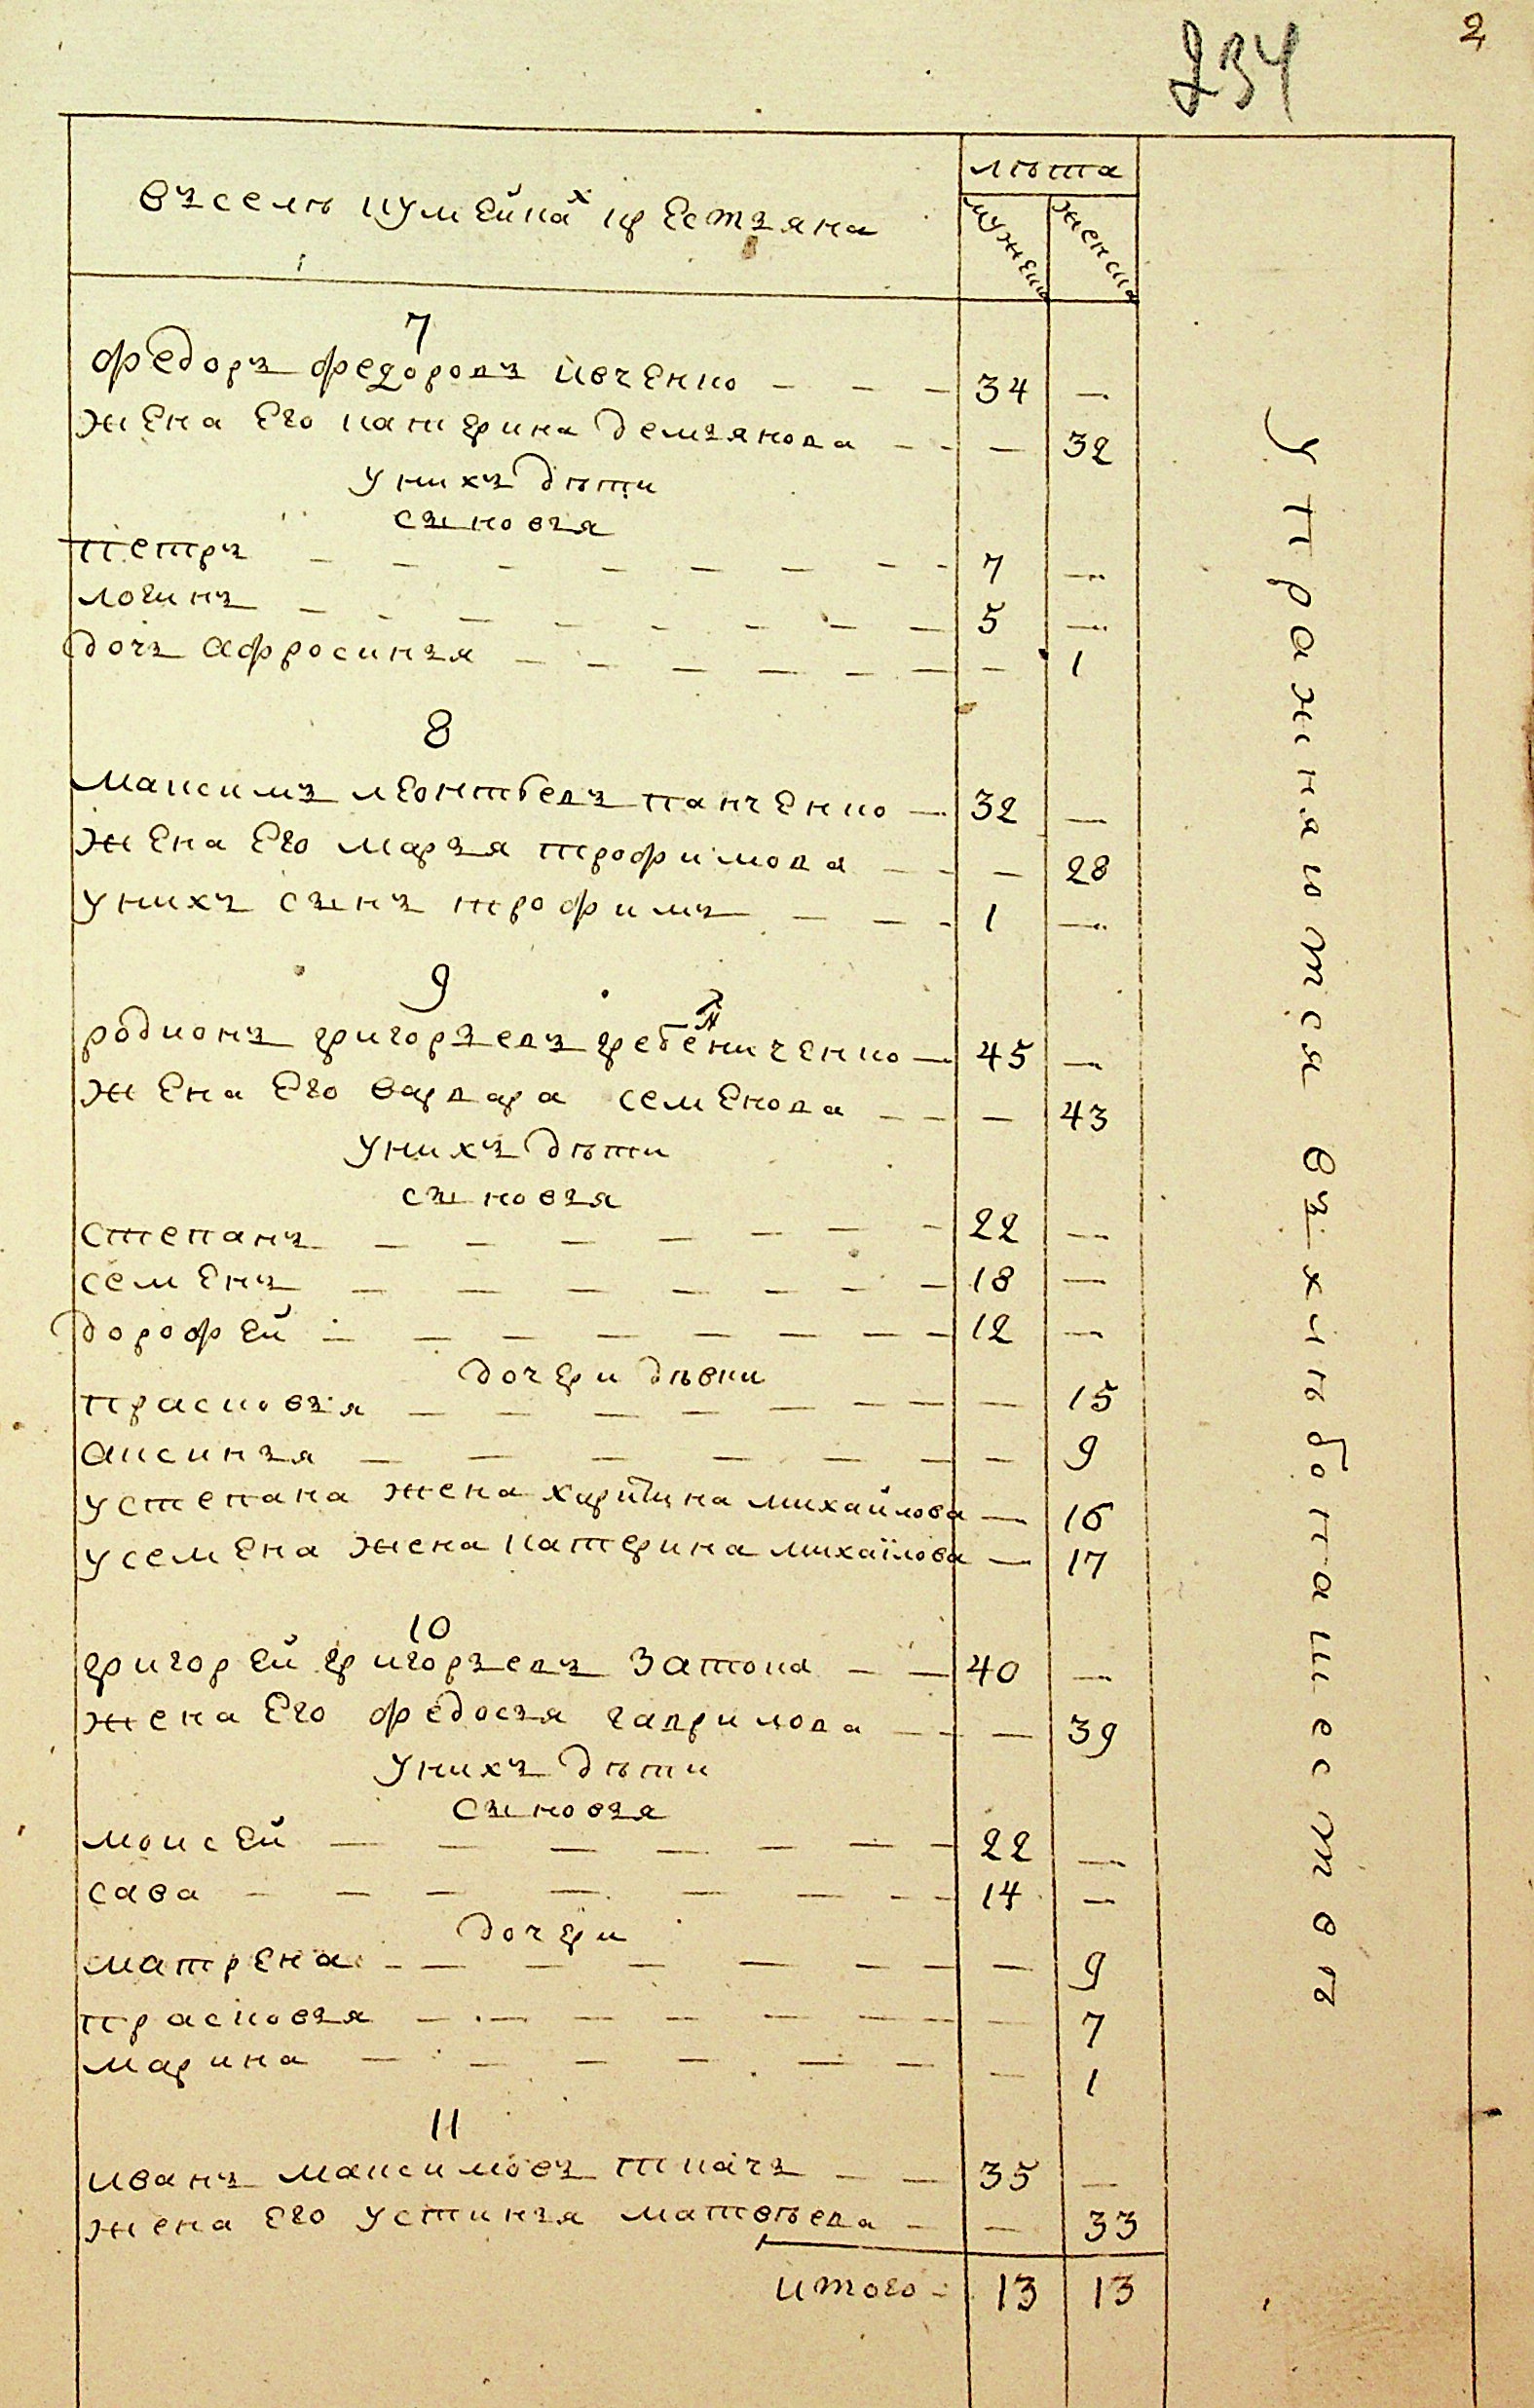 234
2
въселѣ кумейках крестъяна
лѣта
мужеска
женска
7
федоръ федоровъ ивченко — — — 34 —
жена его катерина демъянова — — — 32
унихъ дѣти
сыновъя
петръ — — — — — — — — 7 —
логинъ — — — — — — — — 5 —
дочъ афросинъя — — — — — — — 1
8
максимъ леонтьевъ панченко — 32 —
жена его маръя трофимова — — — 28
унихъ сынъ трофимъ — — — 1 —
9
родионъ григоръевъ гребениченко — 45 —
жена его варвара семенова — — — 43
унихъ дѣти
сыновъя
степанъ — — — — — — — 22 —
семенъ — — — — — — — 18 —
дорофей — — — — — — — — 12 —
дочери дѣвки
прасковъя — — — — — — — — 15
аксинъя — — — — — — — 9
устепана жена харитина михайлова — 16
усемена жена катерина михайлова — 17
10
григорей григоръевъ затока — — 40 —
жена его федосъя гаврилова — — — 39
унихъ дѣти
сыновъя
моисей — — — — — — — 22 —
сава — — — — — — — — 14 —
дочери
матрена — — — — — — — — 9
прасковъя — — — — — — — — 7
марина — — — — — — — — 1
11
иванъ максимовъ ткачъ — — 35 —
жена его устинъя матвѣева — — 33
итого — 13 13
упражняются въ хлѣбопашествѣ